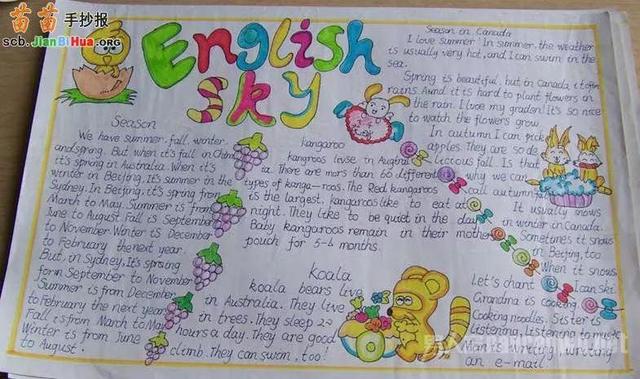 苗苗手抄报
scb.JianBiHua.ORG
English
sky
Season
We have summer, fall, winter,
and spring. But when it's fall in China
it's spring in Australia. When it's
winter in Beijing, it's summer in the
Sydney. In Beijing, it's spring from
March to May. Summer is from
June to August Fall is September
to November Winter is December
to February the next year.
But, in Sydney. It's spring
form September to November
Summer is from December
to February the next year
Fall is from March to May
Winter is from June
to August.
kangaroo
kangroos livse in
a. There are more than 60 different
types of kanga-roos. The Red kangaroos
is the largest, kangaroos like to eat at
night. They like to be quiet in the day
Baby kangaroos remain in their mother
pouch for 5-6 months.
Koala
koala bears live
in Australia. They live
in trees. They sleep
hours a day. They are good
climb. They can swim, too!
Season in Canada
I love summer In summer, the weather
is usually very hot, and I can swim in the
sea.
Spring is beautiful, but in Canada, it often
rains. Aund it is hard to plant flowers in
the rain. I lvoe my graden! It's so nice
to watch the flowers grow.
In autumn I can pick
apples. They are so de
licious fall. Is that
why we can
call autumn
It usually snows
in winter in Canada.
Sometimes it snows
in Beijing, too
When it snows
I can ski.
Let's chant
Grandma is cooking
Cooking noodles. Sister is
Listening, Listening music
Man is writing writing
an e-mail